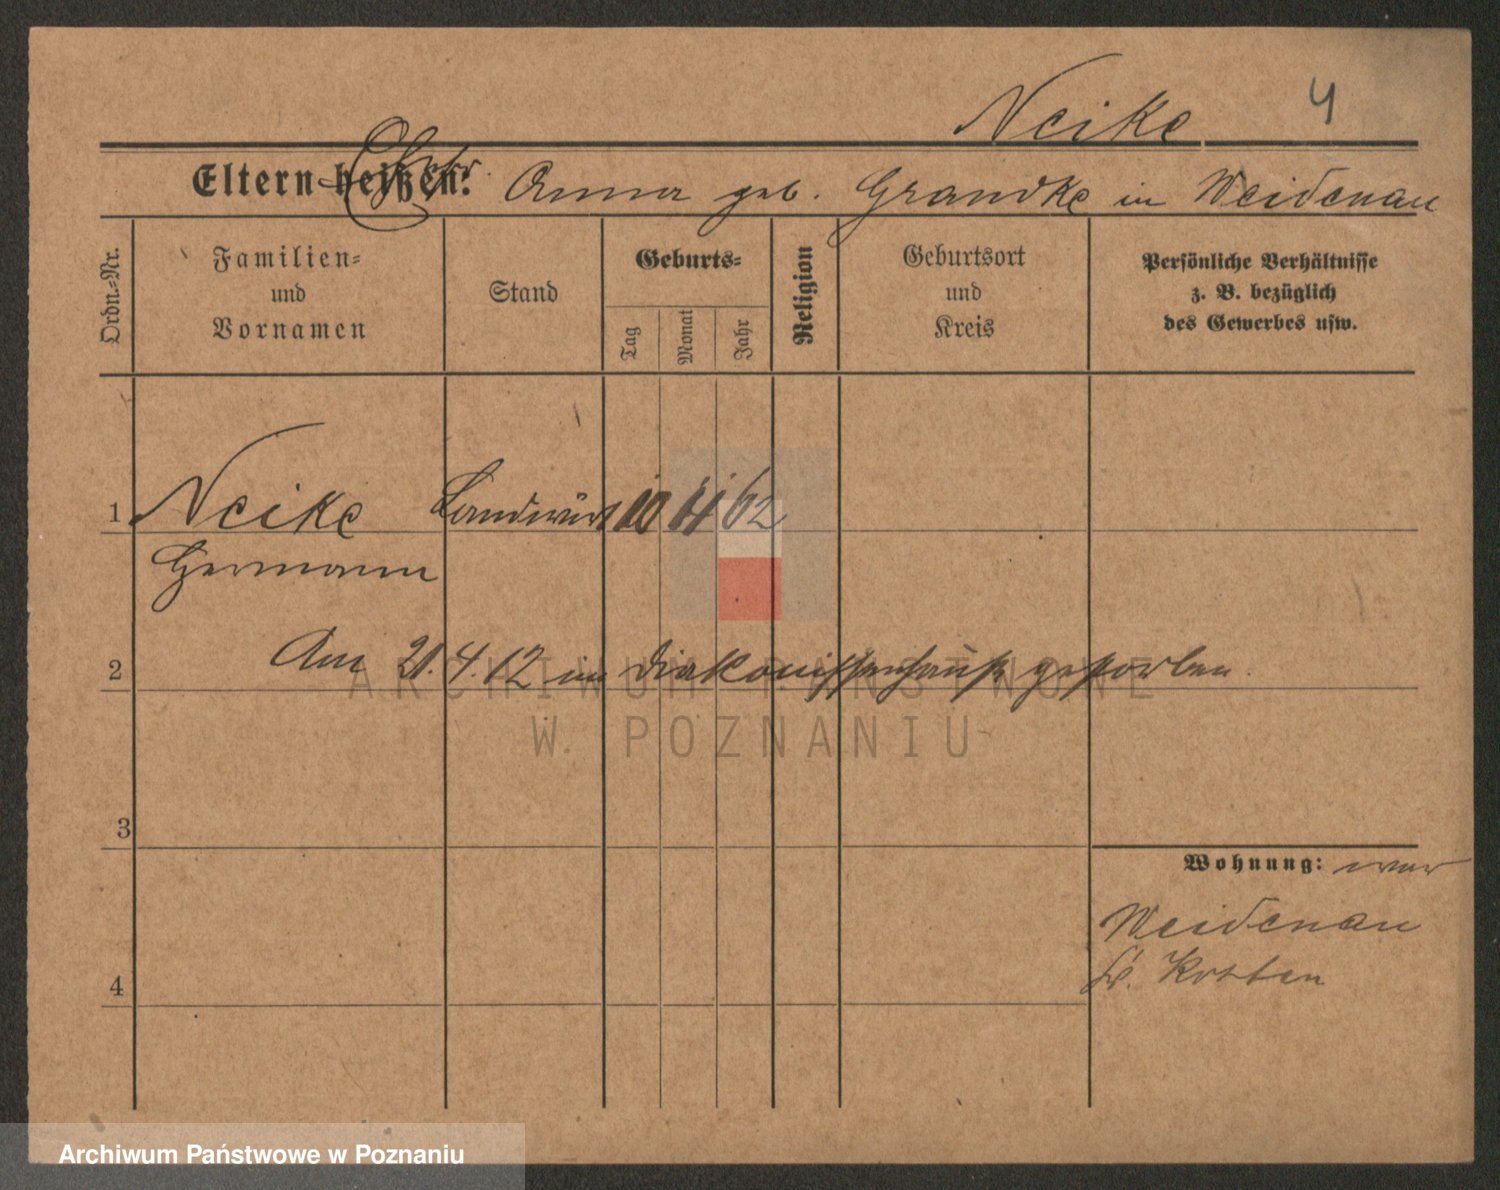 Neike 4
Eltern heißen: Ehefr. Anna geb. Grandke in Weidenau
Ordn.-Nr.
Familien-
und
Vornamen
Stand
Geburts-
Tag
Monat
Jahr
Religion
Geburtsort
und
Kreis
Persönliche Verhältnisse
z. B. bezüglich
des Gewerbes usw.
1 Neike Landwirt 10 4 62
Hermann
2 Am 21.4.12 im Diakonissenhause gestorben.
ARCHIWUM PAŃSTWOWE
W POZNANIU
3
Wohnung: war
Weidenau
Kr. Kosten
4
Archiwum Państwowe w Poznaniu